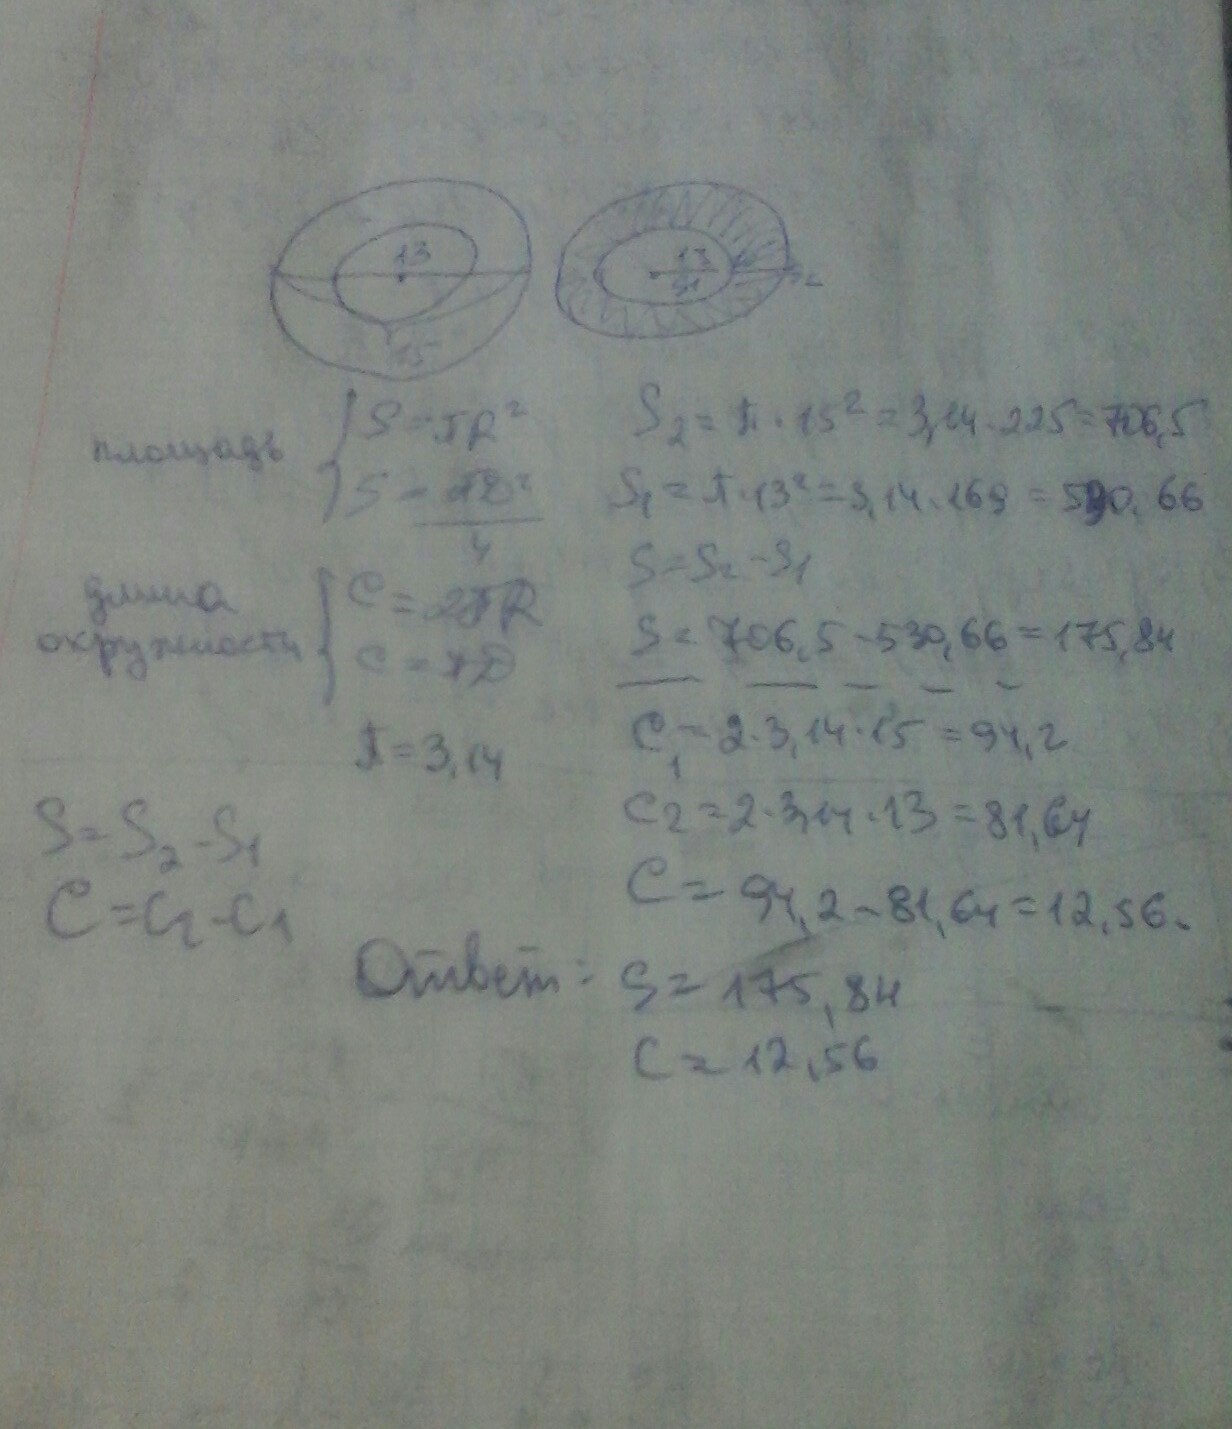 13
15
13
S1
площадь
S = πR²
S = πD²
4
длина
окружности
C = 2πR
C = πD
π = 3,14
S = S₂ - S₁
C = C₂ - C₁
S₂ = π · 15² = 3,14 · 225 = 706,5
S₁ = π · 13² = 3,14 · 169 = 530,66
S = S₂ - S₁
S = 706,5 - 530,66 = 175,84
C₁ = 2 · 3,14 · 15 = 94,2
C₂ = 2 · 3,14 · 13 = 81,64
C = 94,2 - 81,64 = 12,56.
Ответ: S = 175,84
C = 12,56